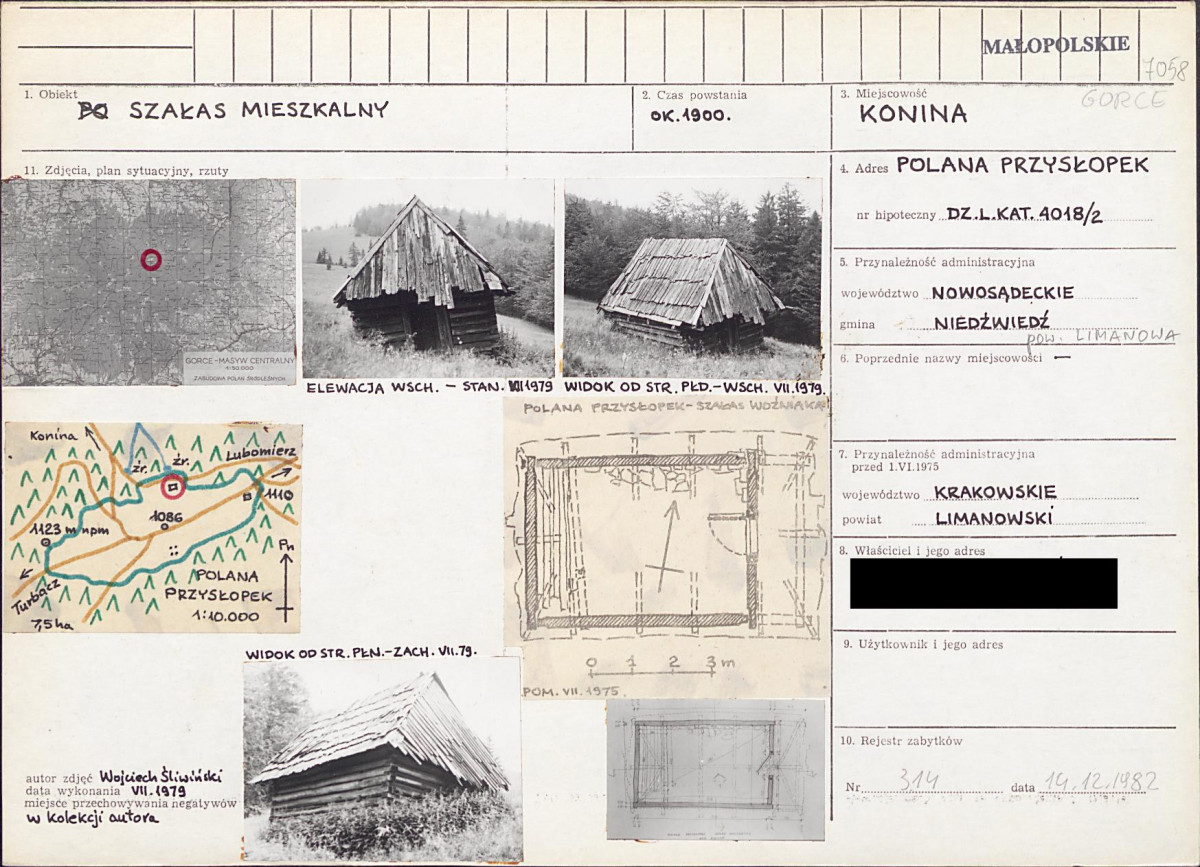 MAŁOPOLSKIE
7058
1. Obiekt
SZAŁAS MIESZKALNY
2. Czas powstania
OK. 1900.
3. Miejscowość
GORCE
KONINA
11. Zdjęcia, plan sytuacyjny, rzuty
4. Adres POLANA PRZYSŁOPEK
nr hipoteczny DZ.L.KAT. 4018/2
5. Przynależność administracyjna
województwo NOWOSĄDECKIE
gmina NIEDŹWIEDŹ
pow. LIMANOWA
6. Poprzednie nazwy miejscowości —
7. Przynależność administracyjna
przed 1.VI.1975
województwo KRAKOWSKIE
powiat LIMANOWSKI
8. Właściciel i jego adres
9. Użytkownik i jego adres
10. Rejestr zabytków
Nr 314 data 14.12.1982
GORCE-MASYW CENTRALNY
1:50.000
ZABUDOWA POLAN
ELEWACJA WSCH. – STAN. VII 1979
WIDOK OD STR. PŁD.-WSCH. VII.1979.
Konina
źr. źr.
Lubomierz
1110
1086
1123 m npm
Pn
POLANA
PRZYSŁOPEK
1:10.000
Turbacz
7,5 ha
POLANA PRZYSŁOPEK-SZAŁAS WOŹNIAKA
0 1 2 3 m
POM. VII. 1975
WIDOK OD STR. PŁN.-ZACH. VII.79.
autor zdjęć Wojciech Śliwiński
data wykonania VII.1979
miejsce przechowywania negatywów
w kolekcji autora